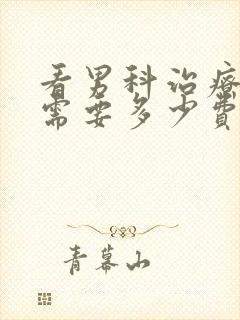 看男科治疗
需要多少费
青幕山